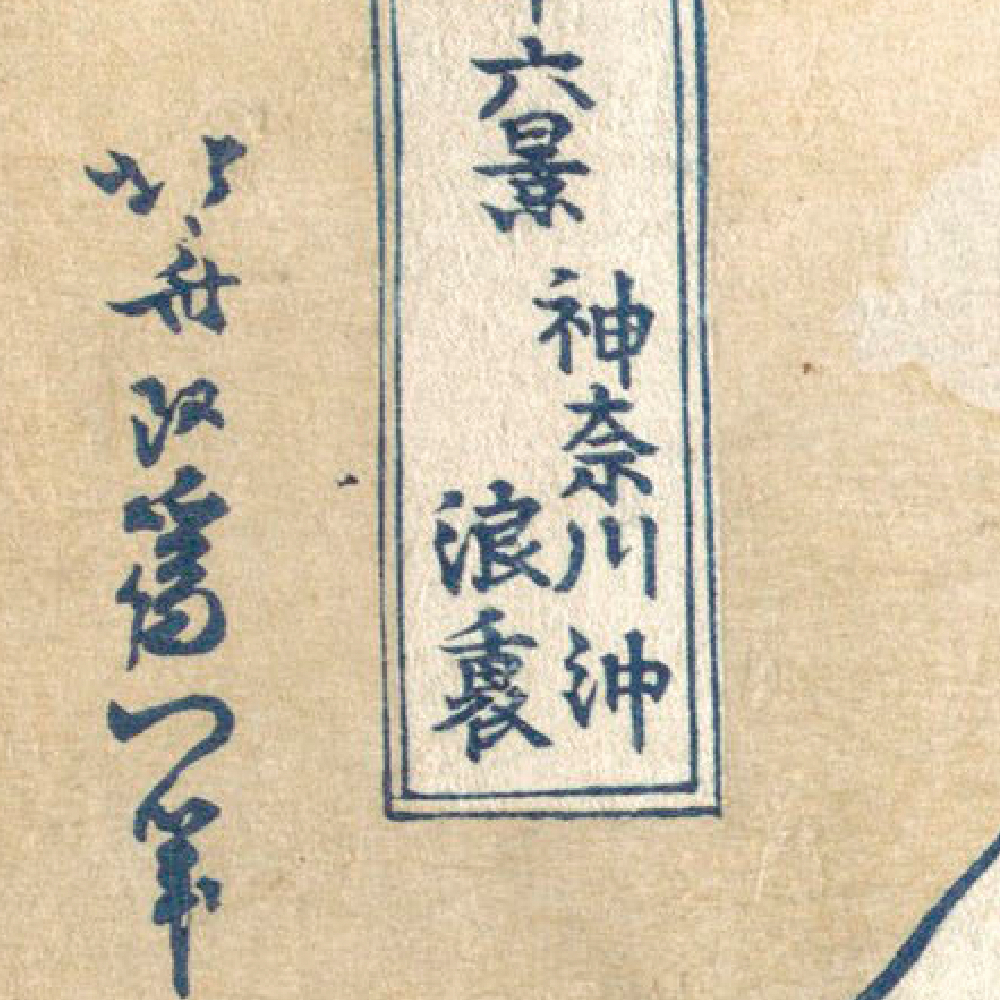 六景
神奈川沖
浪裏
北斎改爲一筆